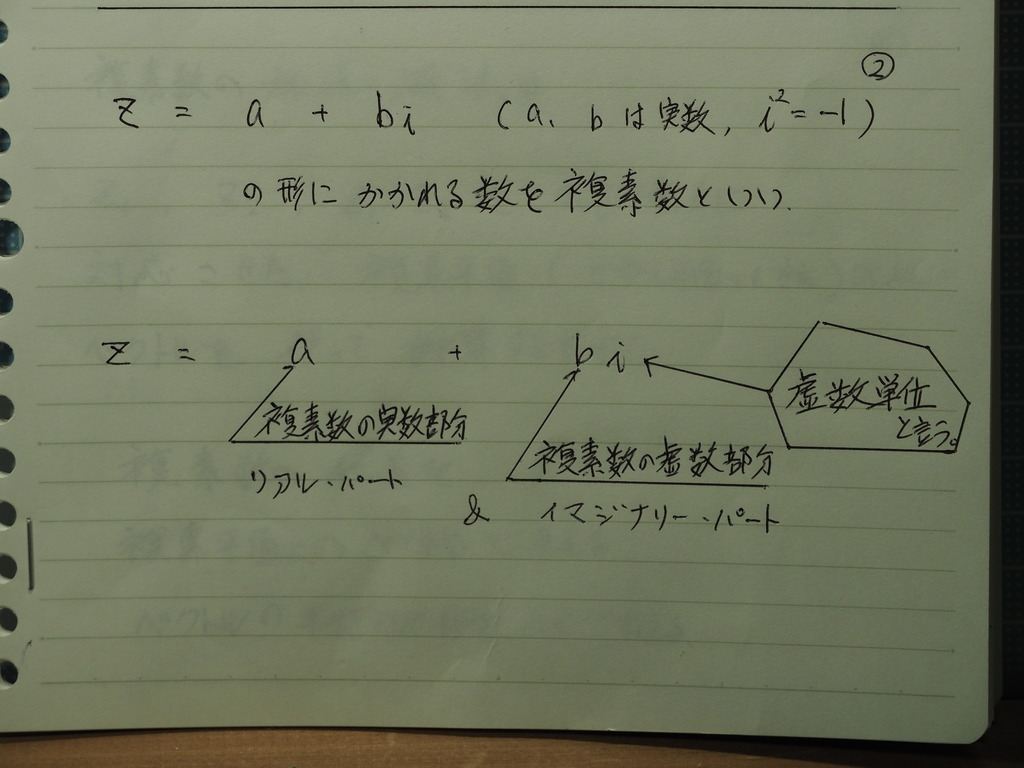 ②
z = a + bi (a, b は実数, i² = -1)
の形にかかれる数を複素数という.
z = a + bi
虚数単位
と言う。
複素数の実数部分
複素数の虚数部分
リアル・パート
& イマジナリー・パート